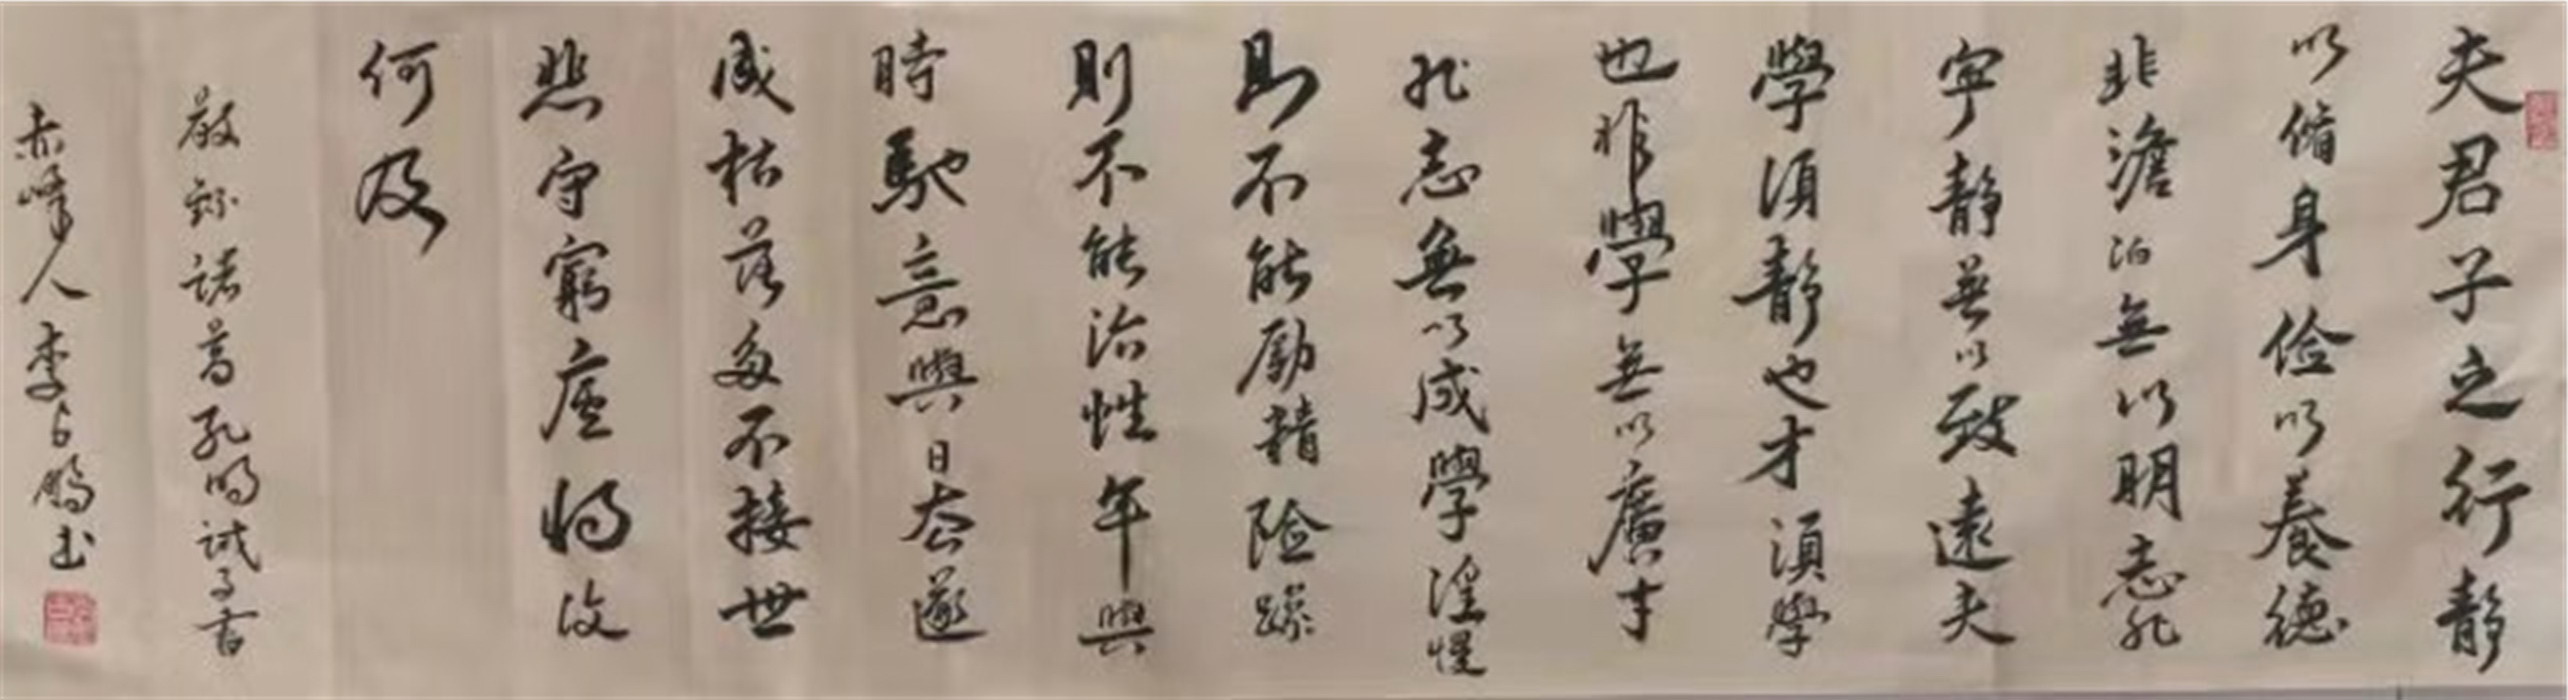 夫君子之行靜
以脩身俭以養德
非澹泊無以明志非
宁靜無以致遠夫
學須靜也才須學
也非學無以廣才
非志無以成學淫慢
則不能勵精险躁
則不能治性年與
時馳意與日去遂
成枯落多不接世
悲守窮廬将復
何及
敬錄諸葛孔明诫子書
赤峰人李占鵬书